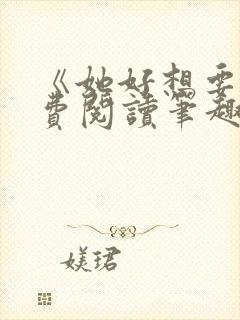 《她好想要
費閱讀筆趣
媄珺